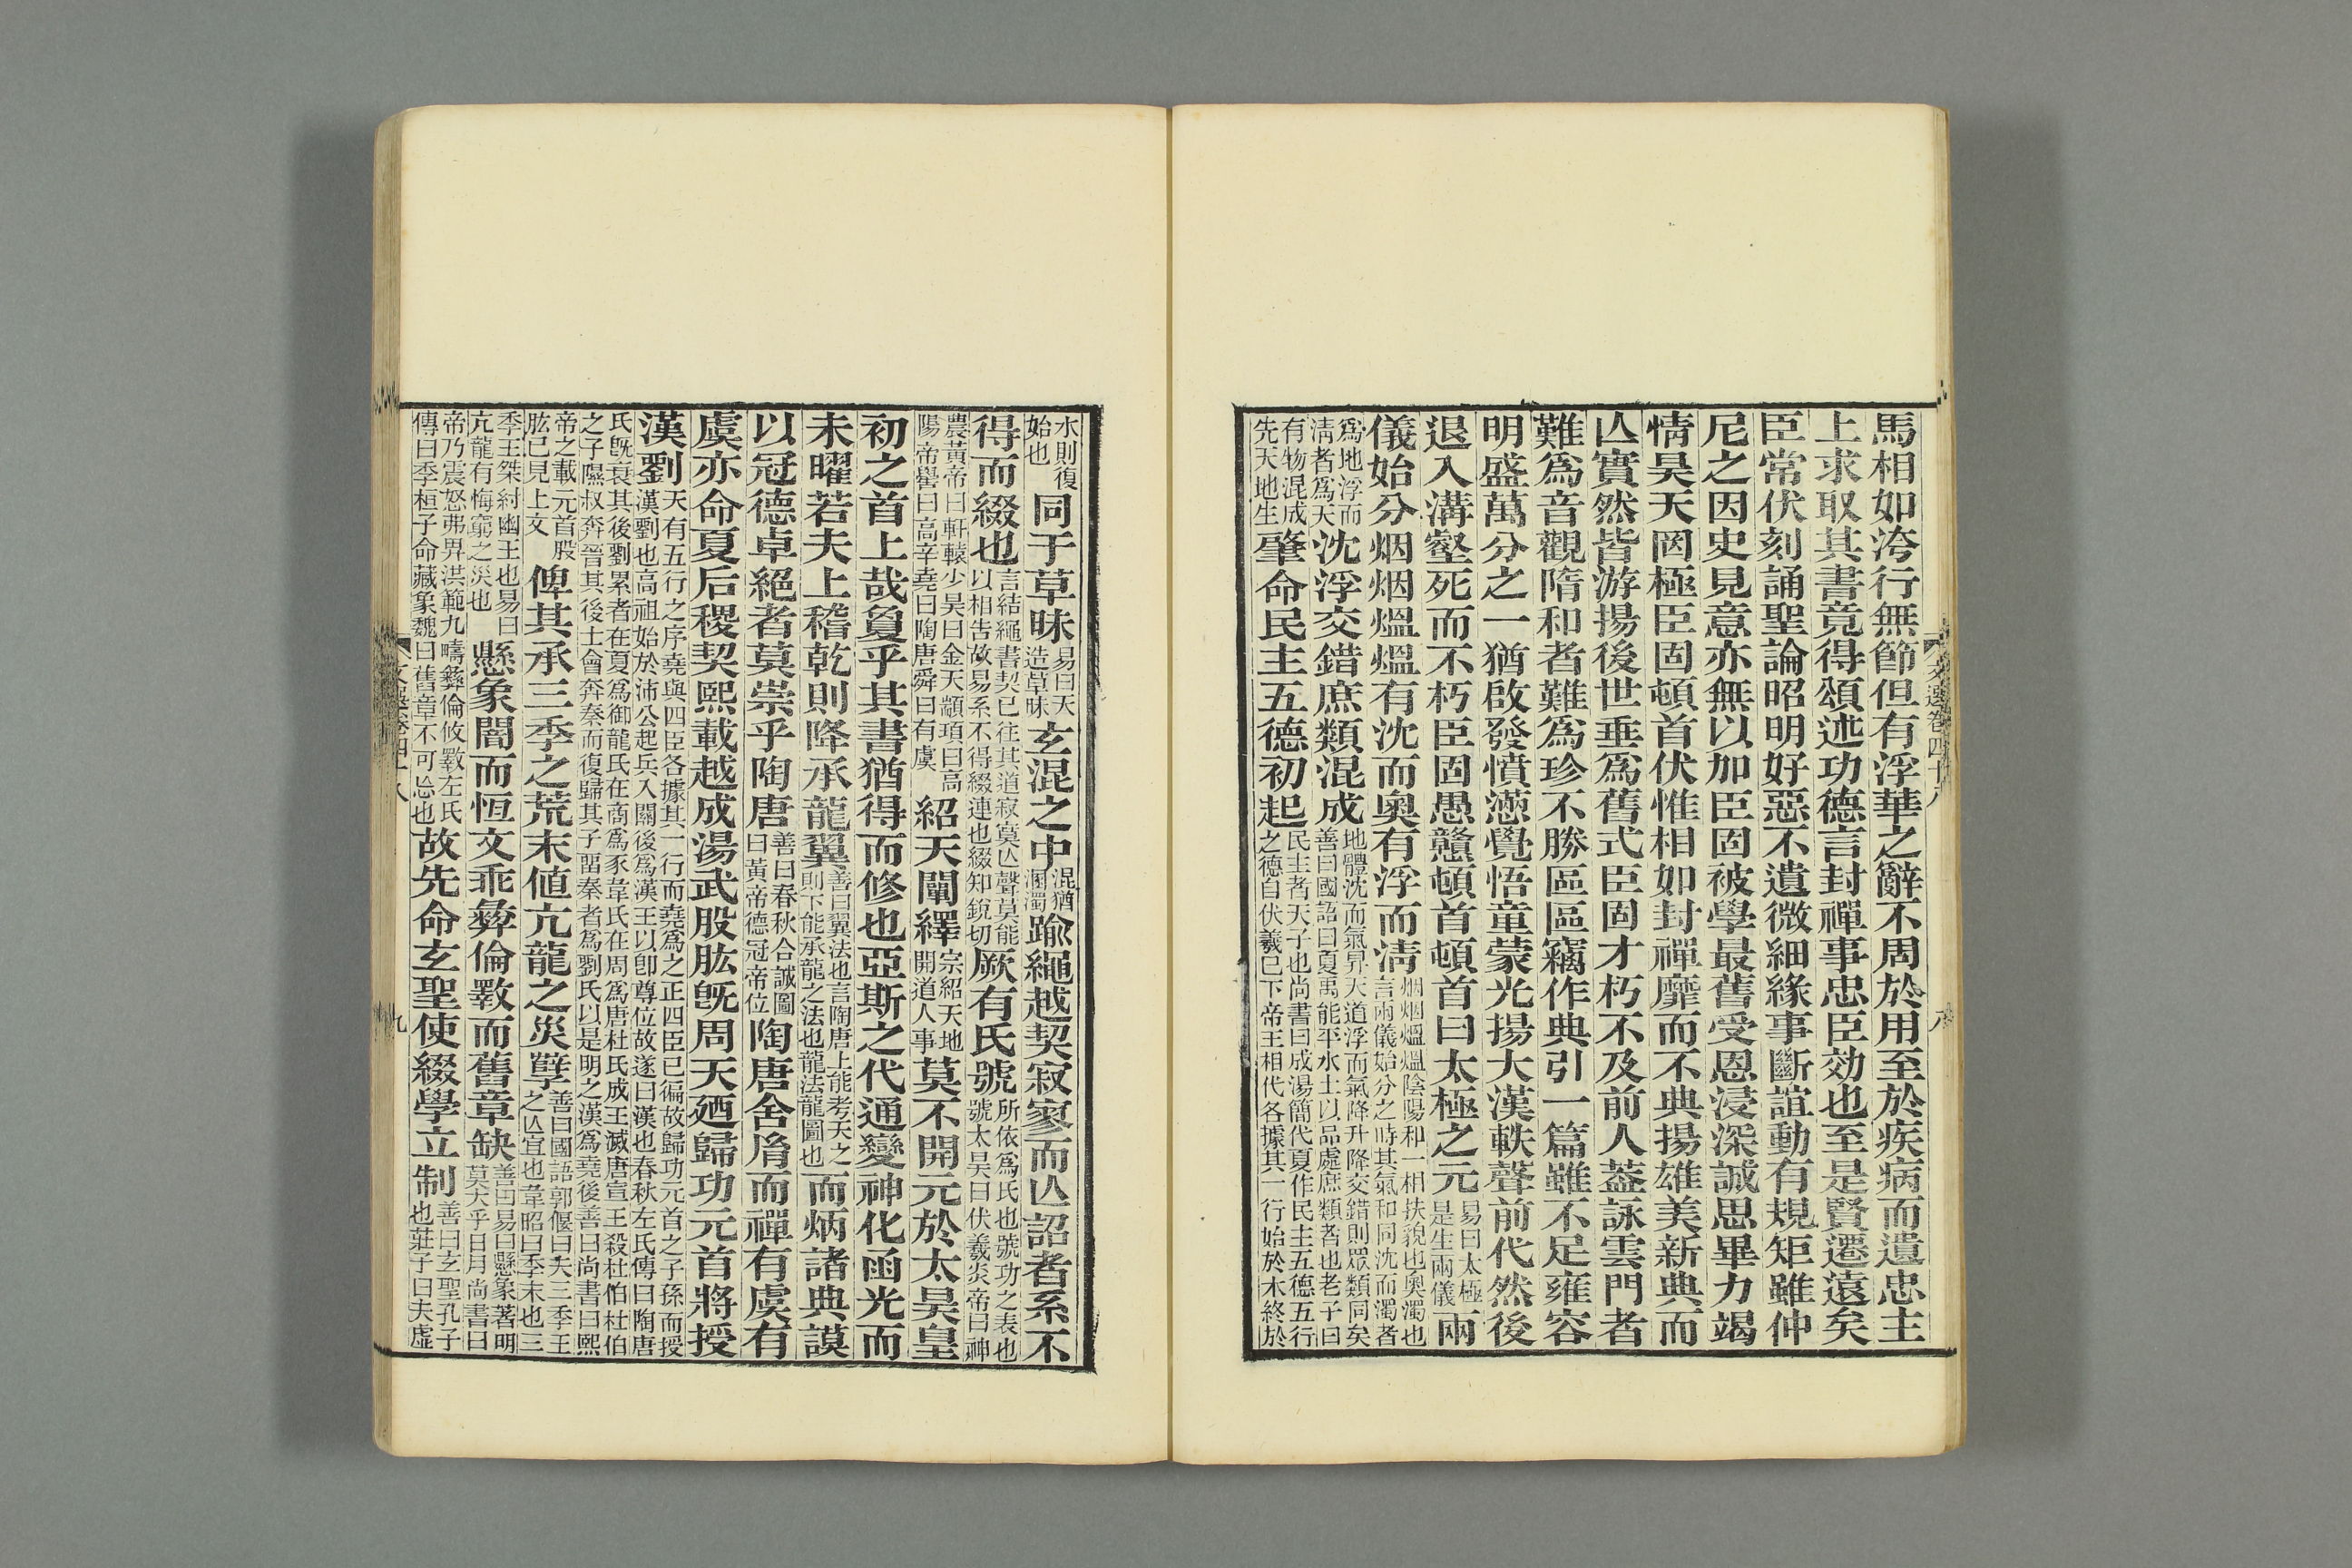 馬相如洿行無節但有浮華之辭不周於用至於疾病而遺忠主
上求取其書竟得頌述功德言封禪事忠臣効也至是賢遷遠矣
臣常伏刻誦聖論昭明好惡不遺微細緣事斷誼動有規矩雖仲
尼之因史見意亦無以加臣固被學最舊受恩浸深誠思畢力竭
情昊天罔極臣固頓首伏惟相如封禪靡而不典揚雄美新典而
亾實然皆游揚後世垂爲舊式臣固才朽不及前人葢詠雲門者
難爲音觀隋和者難爲珍不勝區區竊作典引一篇雖不足雍容
明盛萬分之一猶啟發憤懣覺悟童蒙光揚大漢軼聲前代然後
退入溝壑死而不朽臣固愚戇頓首頓首曰太極之元易曰太極是生兩儀兩
儀始分烟烟熅熅有沈而奧有浮而淸烟烟熅熅陰陽和一相扶貌也奧濁也言兩儀始分之時其氣和同沈而濁者
爲地浮而淸者爲天沈浮交錯庶類混成地體沈而氣昇天道浮而氣降升降交錯則眾類同矣善曰國語曰夏禹能平水土以品處庶類者也老子曰
有物混成先天地生肇命民主五德初起民主者天子也尚書曰成湯簡代夏作民主五德五行之德自伏羲已下帝王相代各據其一行始於木終於
文選卷四十八
八
水則復始也同于草昧易曰天造草昧玄混之中混猶溷濁踰繩越契寂寥而亾詔者系不
得而綴也言結繩書契已往其道寂寞亾聲莫能以相告故易系不得綴連也綴知銳切厥有氏號所依爲氏也號功之表也號太昊曰伏羲炎帝曰神
農黃帝曰軒轅少昊曰金天顓頊曰高陽帝嚳曰高辛堯曰陶唐舜曰有虞紹天闡繹宗紹天地開道人事莫不開元於太昊皇
初之首上哉敻乎其書猶得而修也亞斯之代通變神化函光而
未曜若夫上稽乾則降承龍翼善曰翼法也言陶唐上能考天之則下能承龍之法也龍法龍圖也而炳諸典謨
以冠德卓絕者莫崇乎陶唐善曰春秋合誠圖曰黃帝德冠帝位陶唐舍胤而禪有虞有
虞亦命夏后稷契熙載越成湯武股肱旣周天廼歸功元首將授
漢劉天有五行之序堯與四臣各據其一行而堯爲之正四臣已徧故歸功元首之子孫而授漢劉也高祖始於沛公起兵入關後爲漢王以卽尊位故遂曰漢也春秋左氏傳曰陶唐
氏旣衰其後劉累者在夏爲御龍氏在商爲豕韋氏在周爲唐杜氏成王滅唐宣王殺杜伯杜伯之子隰叔奔晉其後士會奔秦而復歸其子畱秦者爲劉氏以是明之漢爲堯後善曰尚書曰熙
帝之載元首股肱已見上文俾其承三季之荒末値亢龍之災孽善曰國語郭偃曰夫三季王之亾宜也韋昭曰季末也三
季王桀紂幽王也易曰亢龍有悔窮之災也懸象闇而恒文乖彝倫斁而舊章缺善曰易曰懸象著明莫大乎日月尚書曰
帝乃震怒弗畀洪範九疇彝倫攸斁左氏傳曰季桓子命藏象魏曰舊章不可忘也故先命玄聖使綴學立制善曰玄聖孔子也莊子曰夫虛
文選卷四十八
九